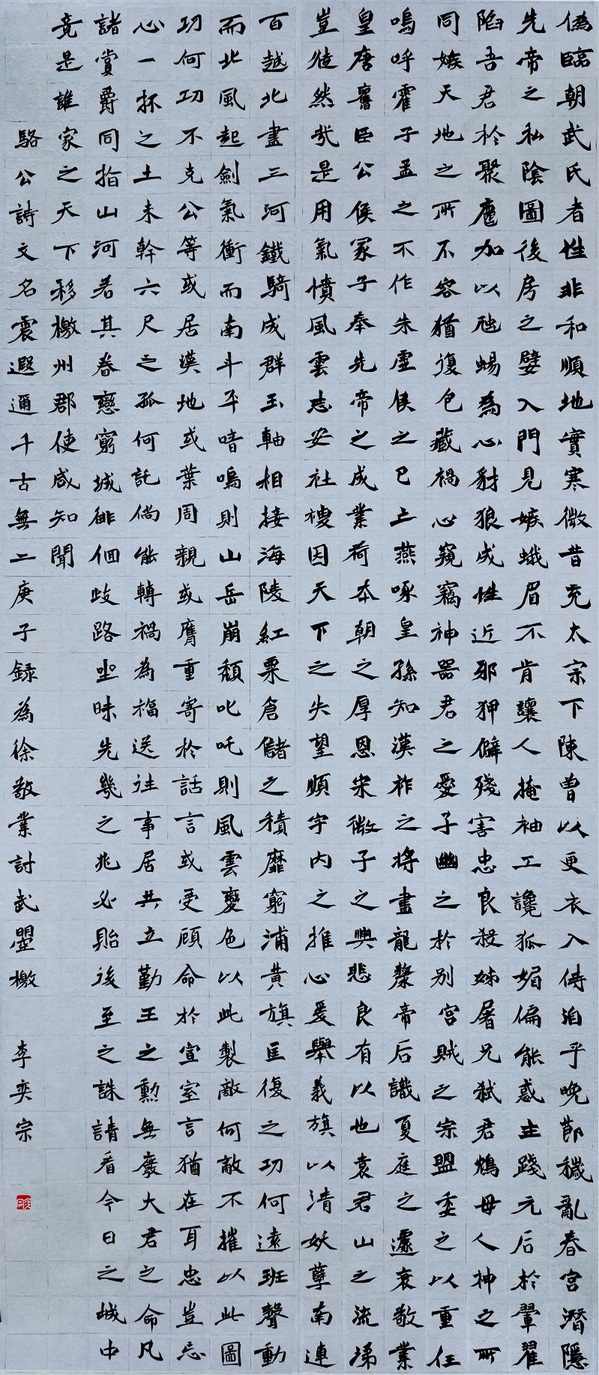 偽臨朝武氏者性非和順地實寒微昔充太宗下陳曾以更衣入侍洎乎晚節穢亂春宮潛隱
先帝之私陰圖後房之嬖入門見嫉蛾眉不肯讓人掩袖工讒狐媚偏能惑主踐元后於翬翟
陷吾君於聚麀加以虺蜴為心豺狼成性近邪狎僻殘害忠良殺姊屠兄弒君鴆母人神之所
同嫉天地之所不容猶復包藏禍心窺竊神器君之愛子幽之於別宮賊之宗盟委之以重任
嗚呼霍子孟之不作朱虛侯之已亡燕啄皇孫知漢祚之將盡龍漦帝后識夏庭之遽衰敬業
皇唐舊臣公侯冢子奉先帝之成業荷本朝之厚恩宋微子之興悲良有以也袁君山之流涕
豈徒然哉是用氣憤風雲志安社稷因天下之失望順宇內之推心爰舉義旗以清妖孽南連
百越北盡三河鐵騎成群玉軸相接海陵紅粟倉儲之積靡窮浦黃旗匡復之功何遠班聲動
而北風起劍氣衝而南斗平喑嗚則山岳崩頹叱吒則風雲變色以此製敵何敵不摧以此圖
功何功不克公等或居漢地或葉周親或膺重寄於話言或受顧命於宣室言猶在耳忠豈忘
心一杯之土未幹六尺之孤何託倘能轉禍為福送往事居共立勤王之勳無廢大君之命凡
諸賞爵同指山河若其眷戀窮城徘徊歧路坐昧先幾之兆必貽後至之誅請看今日之域中
竟是誰家之天下移檄州郡使咸知聞
駱公詩文名震遐邇千古無二庚子錄為徐敬業討武曌檄 李奕宗